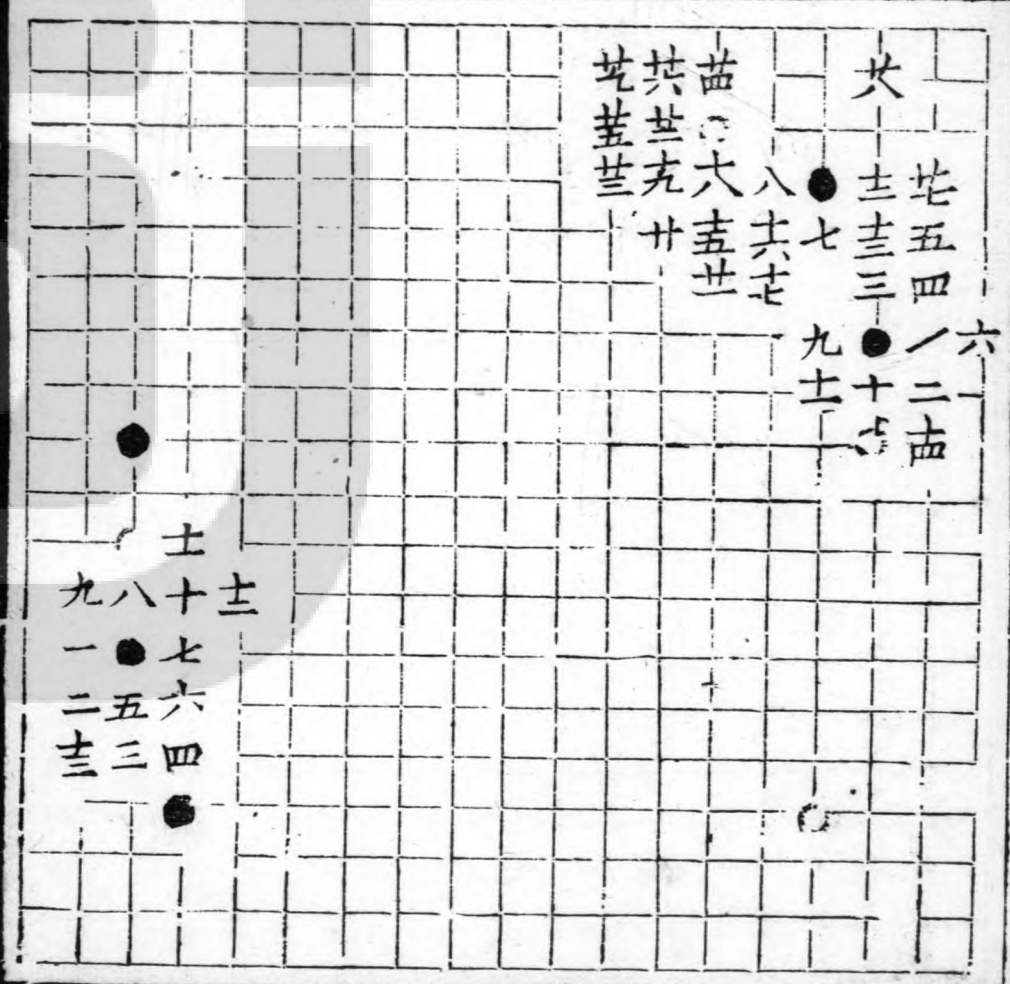 廿九 廿六 廿四 廿八
廿五 廿二
廿三 十九 十八 八 十二 廿七
廿 十五 十六 七 十三 五
廿一 十七 三 四
九 一 六
十一 十 二
十四
十一
九 八 十 十二
一 七
二 五 六
十三 三 四